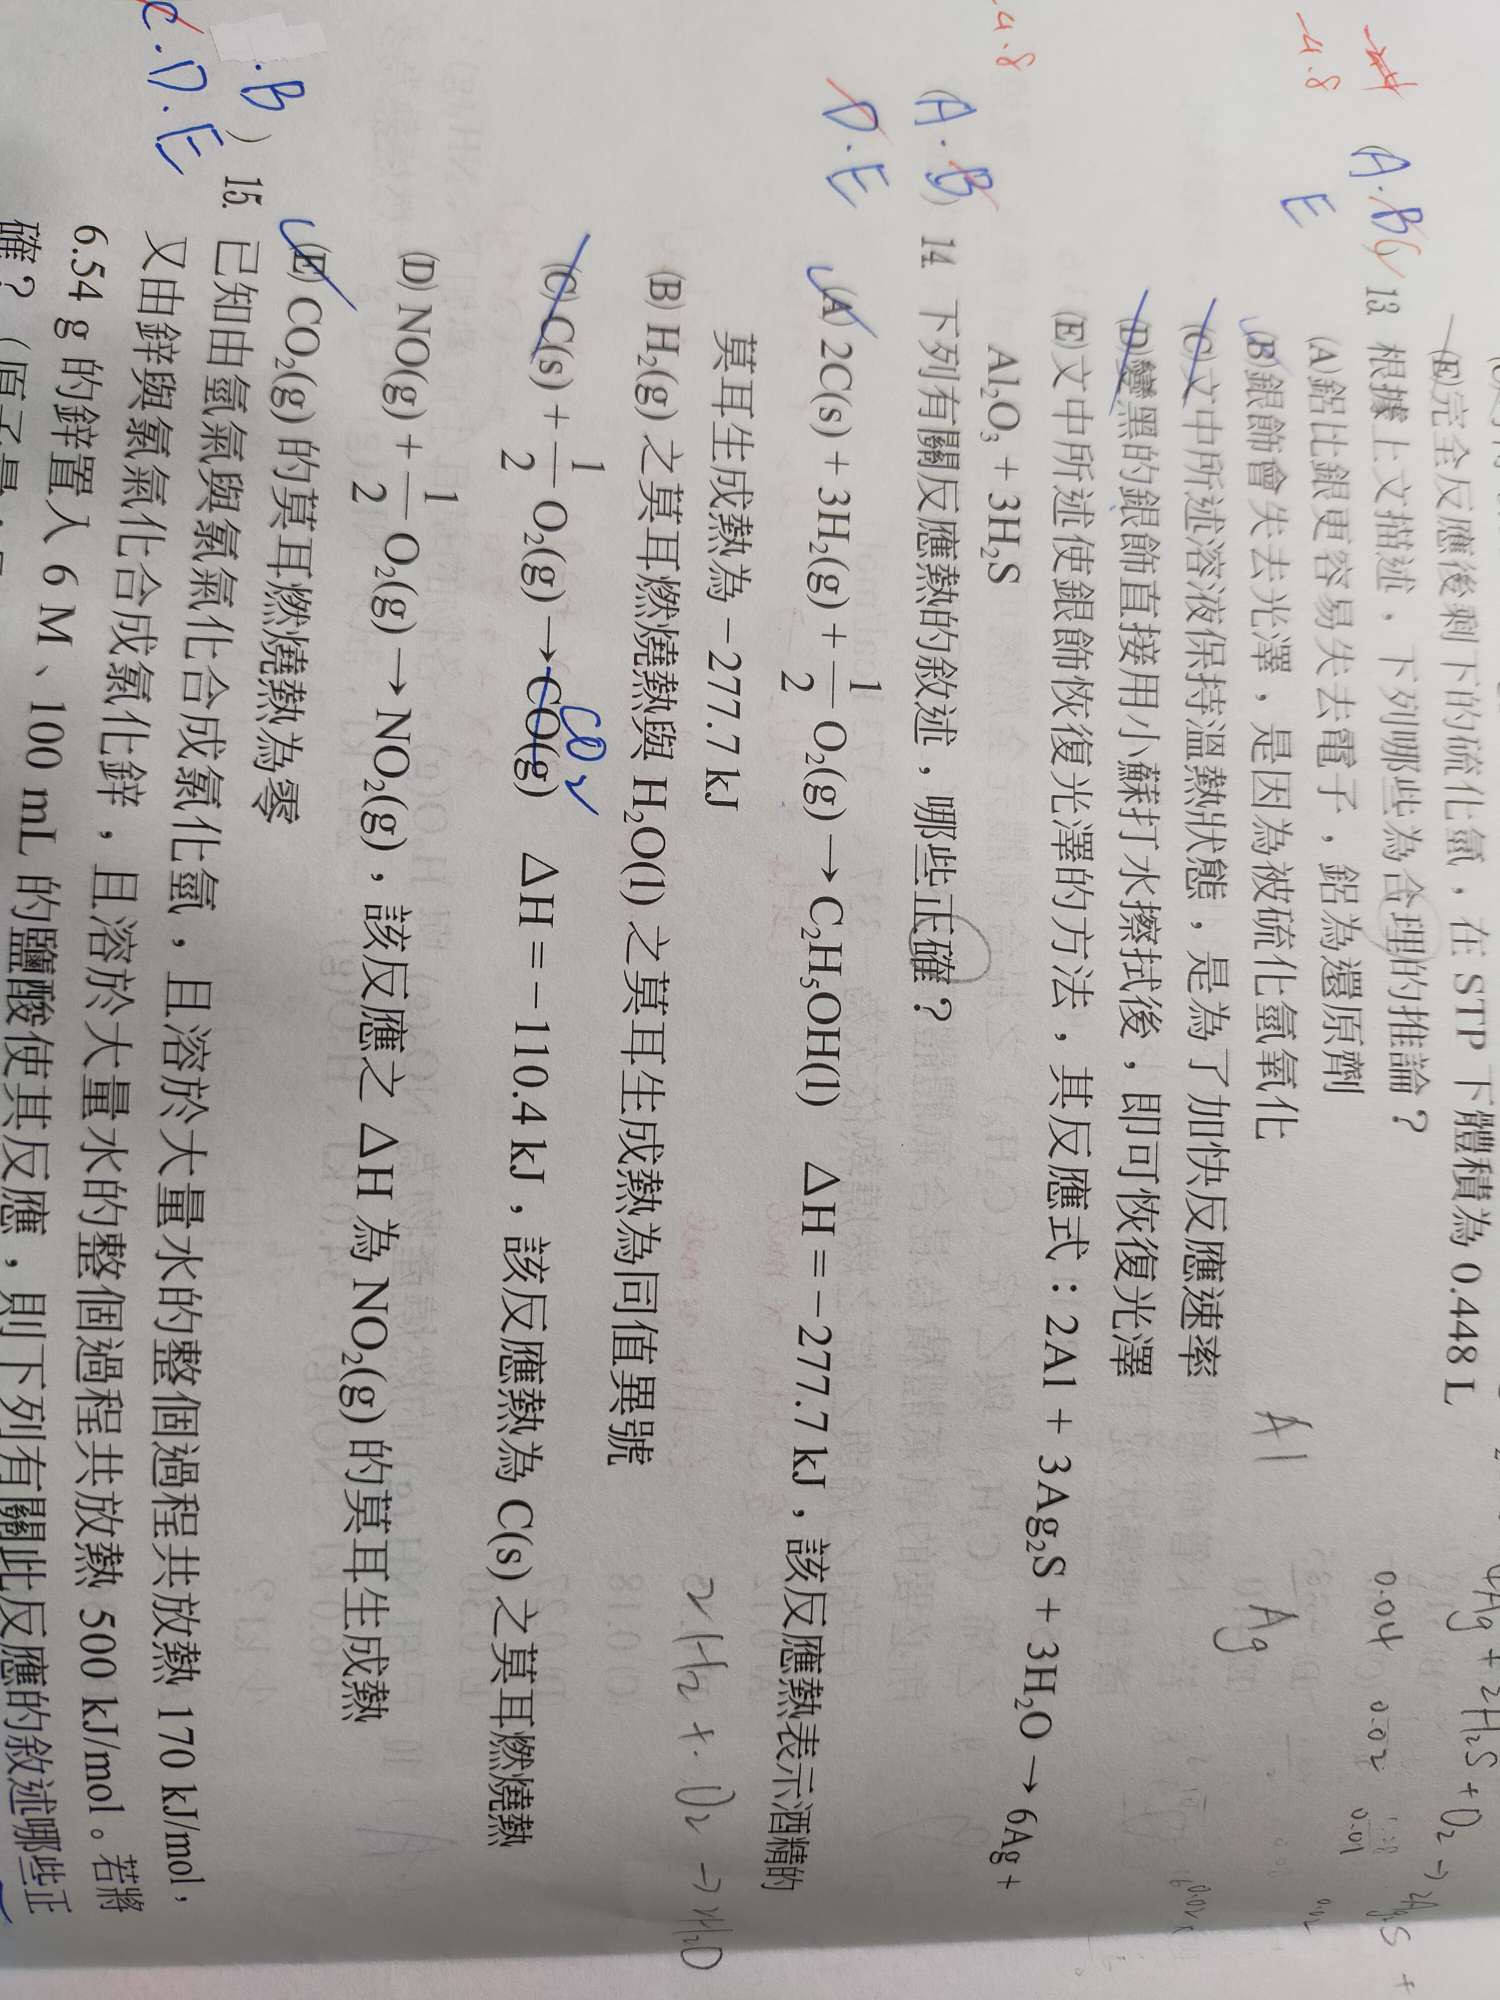 (E)完全反應後剩下的硫化氫，在 STP 下體積為 0.448 L
4Ag + 2H₂S + O₂ → 2Ag₂S +
0.04 0.02 0.01
-4.8
(A.B
E
13. 根據上文描述，下列哪些為合理的推論？
(A)鋁比銀更容易失去電子，鋁為還原劑
(B)銀飾會失去光澤，是因為被硫化氫氧化
Al Ag
(C)文中所述溶液保持溫熱狀態，是為了加快反應速率
(D)變黑的銀飾直接用小蘇打水擦拭後，即可恢復光澤
(E)文中所述使銀飾恢復光澤的方法，其反應式：2Al + 3Ag₂S + 3H₂O → 6Ag +
Al₂O₃ + 3H₂S
-4.8
(A.B
D.E
) 14. 下列有關反應熱的敘述，哪些正確？
(A) 2C(s) + 3H₂(g) + 1/2 O₂(g) → C₂H₅OH(l) ΔH = −277.7 kJ，該反應熱表示酒精的
莫耳生成熱為 −277.7 kJ
(B) H₂(g) 之莫耳燃燒熱與 H₂O(l) 之莫耳生成熱為同值異號
2H₂ + O₂ → 2H₂O
(C) C(s) + 1/2 O₂(g) → CO(g) ΔH = −110.4 kJ，該反應熱為 C(s) 之莫耳燃燒熱
CO₂
(D) NO(g) + 1/2 O₂(g) → NO₂(g)，該反應之 ΔH 為 NO₂(g) 的莫耳生成熱
(E) CO₂(g) 的莫耳燃燒熱為零
.B
C.D.E
) 15. 已知由氫氣與氯氣化合成氯化氫，且溶於大量水的整個過程共放熱 170 kJ/mol，
又由鋅與氯氣化合成氯化鋅，且溶於大量水的整個過程共放熱 500 kJ/mol。若將
6.54 g 的鋅置入 6 M、100 mL 的鹽酸使其反應，則下列有關此反應的敘述哪些正
確？（原子量：